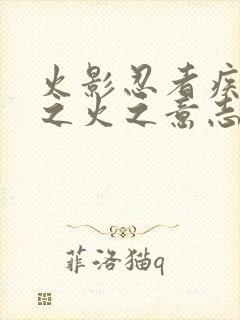 火影忍者疾
之火之意志
菲洛猫q